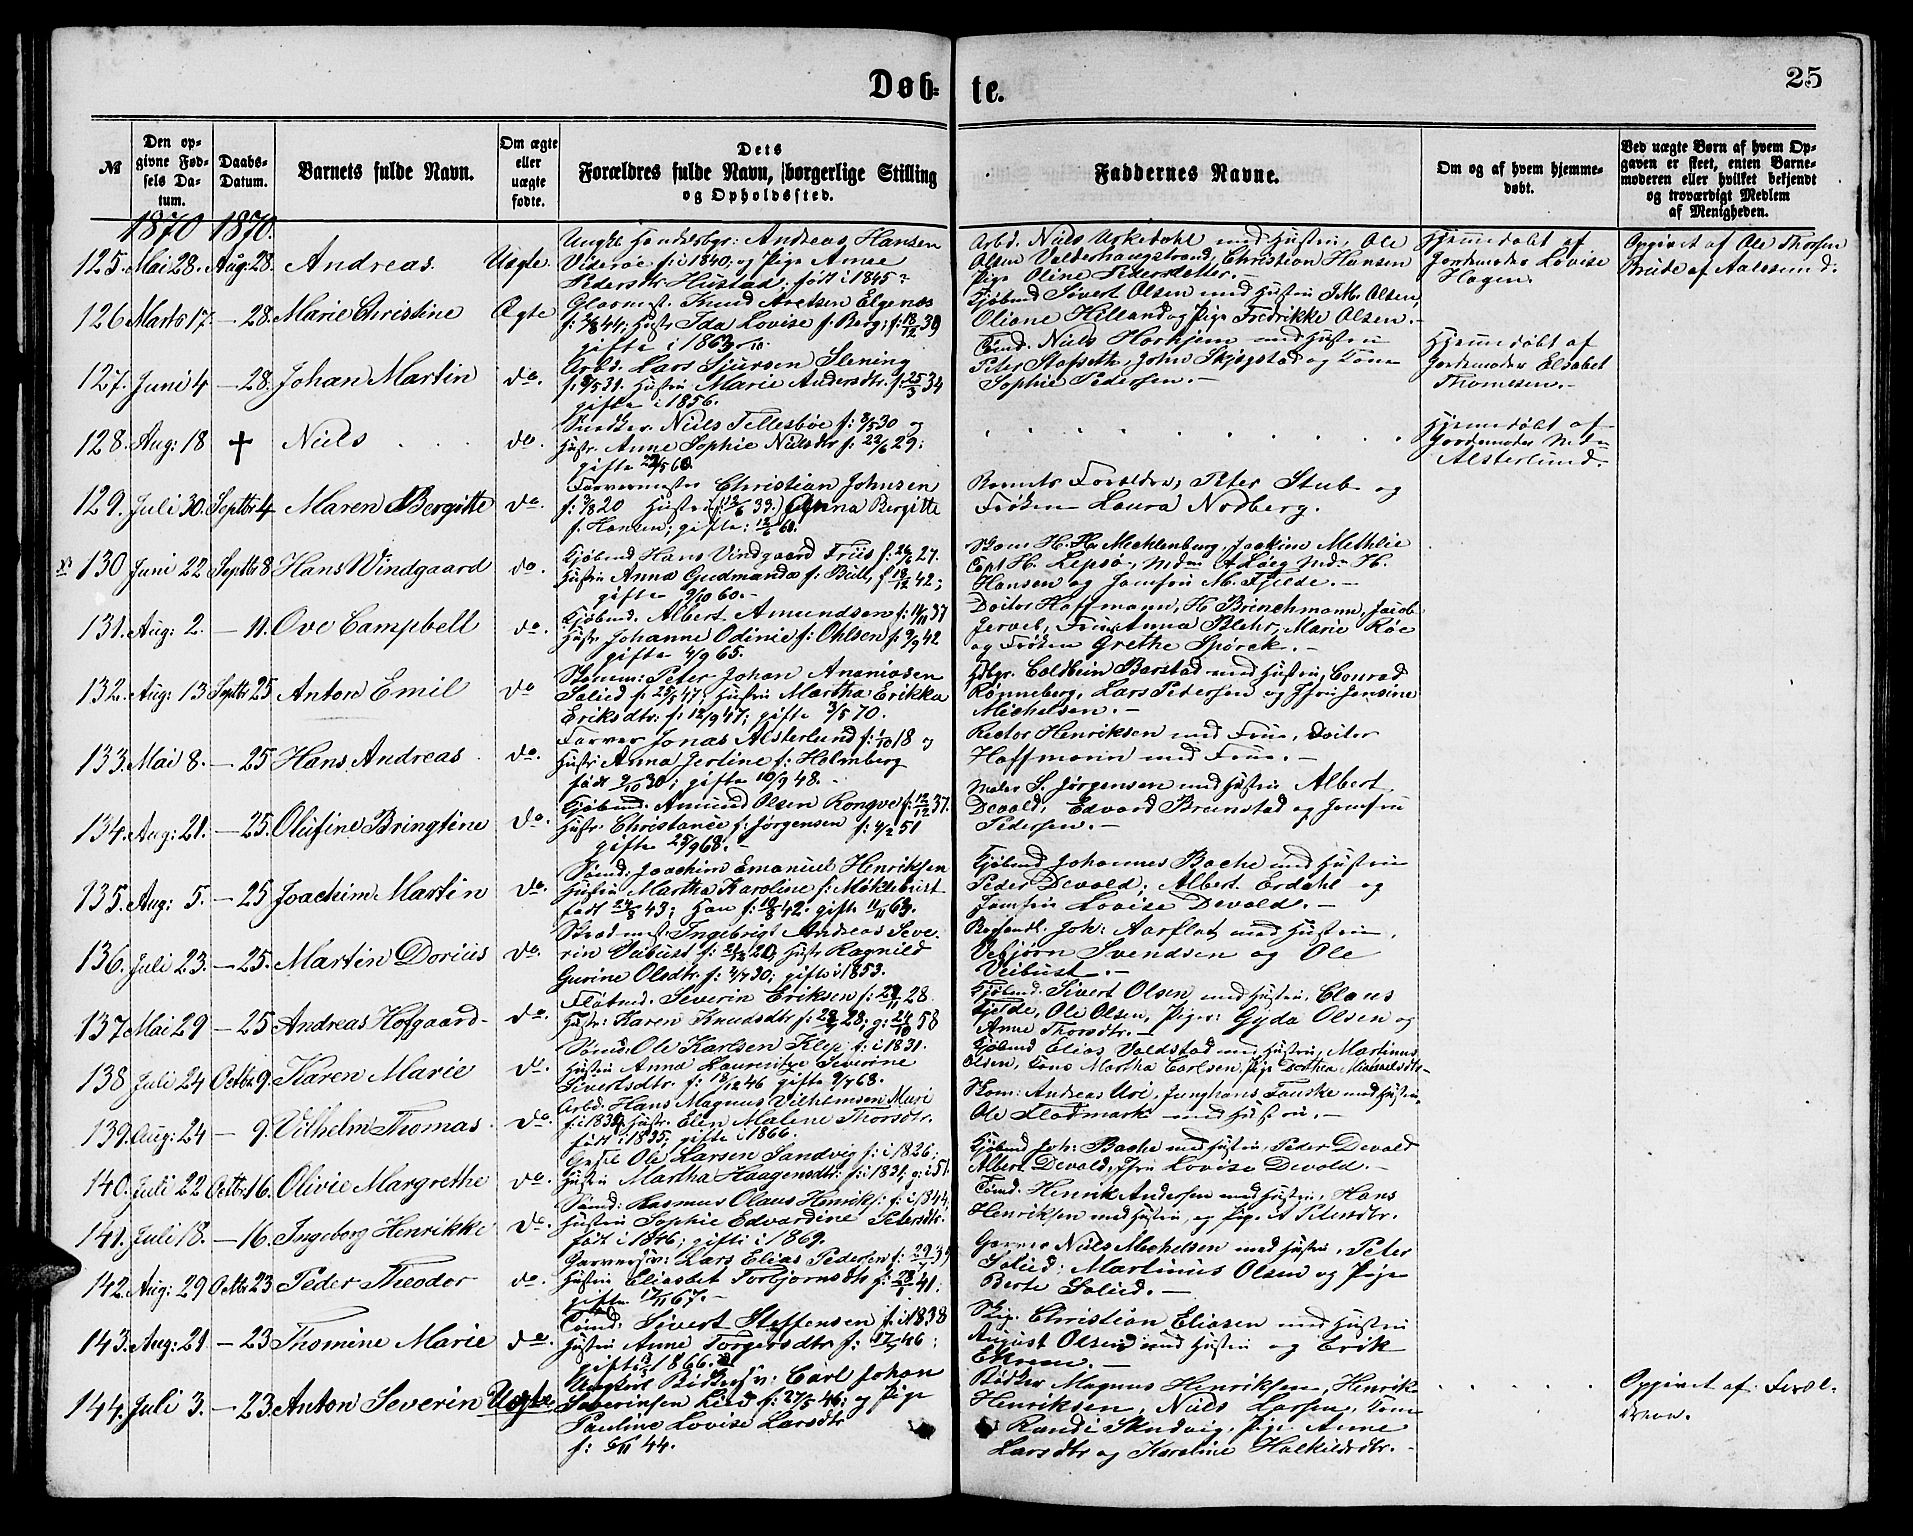 Døb-
te.
25
№
Den op-
givne Fød-
sels Da-
tum.
Daabs-
Datum.
Barnets fulde Navn.
Om ægte
eller
uægte
fødte.
Dets
Forældres fulde Navn, borgerlige Stilling
og Opholdssted.
Faddernes Navne.
Om og af hvem hjemme-
døbt.
Ved uægte Børn af hvem Op-
gaven er skeet, enten Barne-
moderen eller hvilket bekjendt
og troværdigt Medlem
af Menigheden.
1870 1870.
125. Mai 28. Aug: 28. Andreas. Uægte.
Andreas Hansen
Viderøe f: i 1840; og Pige Anne
Pedersdtr Hustad; født i 1845
Arbd. Niels Urkedahl med Hustru, Ole
Olsen Valderhaugstrand, Christian Hansen
Pige Oline Pedersdatter.
Hjemmedøbt af
Jordemoder Lovise
Hagen.
Opgivet af Ole Thorsen
Brude af Aalesund.
126 Marts 17. — 28. Marie Christine Ægte
Glasmest. Knud Aretsen Elgenæs
f: 7/8 44; Hustr: Ida Lovise f: Berg; f: 18/12 39
gifte i 1863
Kjøbmd Sivert Olsen med Hustru J. M. Olsen,
Oliane Hilland og Pige Fredrikke Olsen.
127. Juni 4 — 28. Johan Martin do.
Arbd. Lars Sjursen Slening
Hustru Marie Andersdtr. f: 25/3 34
gifte i 1856.
Tømd. Niels Horkjem med Hustru
Peter Stafseth, John Skjegstad og Kone
Sophie Pedersen.
Hjemmedøbt af
Jordemoder Elsabet
Thomesen.
128. Aug: 18 † Niels do.
Niels Tellesbøe f: 8/5 30 og
Hustr. Anne Sophie Nielsdtr f: 22/6 29;
gifte 60
Hjemmedøbt af
Jordemoder Mdm
Alsterlund.
129. Juli 30. Septbr 4. Maren Bergitte do.
Farvermester Christian Johnsen
f: 9/8 20 Hustru Anna Bergitte
f. Hansen; gifte:
Barnets Forældre, Peter Stub og
Frøken Laura Nodberg.
130 Juni 22 Septbr 8. Hans Windgaard do.
Kjøbmd Hans Vindgaard Friis f: 27.
Hustru Anna Gudmanda f: Bull, f 42;
gifte 9/10 60.
Skom. H. H. Mechlenburg, Joakim Methlie
Capt. H. Lepsø, Mdm A Løeg Mdm H.
Hansen og Jomfru M. Fjelde.
131. Aug: 2. — 11. Ove Campbell do.
Kjøbmd. Albert Amundsen f: 37
Hustr. Johanne Odinie f: Ohlsen f: 9/9 42
gifte 4/9 65.
Doctor Hoffmann, H. Brinchmann, Jacob
Jervel, Fru Anna Blehr, Marie Røe
og Frøken Grethe Spørck.
132. Aug: 13 Septbr 25 Anton Emil do
Peter Johan Ananiasen
Solied f: 25/5 47, Hustru Martha Erikka
Eriksdtr. f: 12/9 47; gifte 3/5 70.
Coldbein Barstad med Hustru, Conrad
Rønneberg, Lars Pedersen og Jfru Jensine
Michelsen.
133. Mai 8. — 25 Hans Andreas do.
Farver Jonas Alsterlund f: 18 og
Hustr Anna Jertine f: Holmberg
født 30; gifte 10/9 48.
Rector Henriksen med Frue, Doctor
Hoffmann med Frue.
134. Aug: 21. — 25. Olufine Bringtine do.
Kjøbmd. Amund Olsen Rongve f: 12/12 37.
Hustr. Christance f: Jørgensen f: 4/2 51
gifte 25/9 68.
Maler S. Jørgensen med Hustru Albert
Devold, Edvard Brunstad og Jomfru
Pedersen.
135. Aug: 5. — 25 Joachim Martin do.
Joachim Emanuel Henriksen
Hustru Martha Karoline f: Møklebust
født 24/8 43; Han f: 42. gifte 63.
Kjøbmd Johannes Bache med Hustru
Peder Devold; Albert Erdahl og
Jomfru Lovise Devold.
136. Juli 23. — 25. Martin Dorius do.
Ingebrigt Andreas Seve-
rin Veibust f: 20, Hustr Ragnild
Gurine Olsdtr. f: 4/7 30; gifte i 1853.
Joh: Aarflot med Hustru,
Vebjørn Svendsen og Ole
Veibust.
137 Mai 29 — 25 Andreas Hofgaard do.
Severin Eriksen f: 28.
Hustr: Karen Knudsdtr f: 28; g: 24/10 58
Kjøbmd. Sivert Olsen med Hustru, Claus
Fjelde, Ole Olsen, Piger: Gyda Olsen og
Anne Thorsdtr.
138 Juli 24 Octbr 9. Karen Marie do.
Ole Karlsen Klep f: i 1831.
Hustru Anna Lauritze Severine
Sivertsdtr. f: 18/12 46 gifte 9/7 68.
Kjøbmd Elias Valdstad med Hustru, Martinus
Olsen, Kone Martha Carlsen, Pige Dorthea
139. Aug: 24 — 9. Vilhelm Thomas. do.
Arbd. Hans Magnus Vilhelmsen Muri
Hustr. Elen Malene Thorsdtr.
født i 1835; gifte i 1866.
Skom: Andreas Uri, Junghans Fauske med Hustru,
Ole Flodmark med Hustru.
140. Juli 22 Octbr 16. Olivie Margrethe do.
Ole Larsen Sandvig f: i 1826;
Hustru Martha Haagensdtr. f: i 1831; g: i 51.
Kjøbmd Joh: Bache med Hustru, Peder Devold
Albert Devold, Jfru Lovise Devold.
141. Juli 18. — 16. Ingeborg Henrikke do.
Rasmus Olaus Henriks: f: i 1844,
Hustru Sophie Edvardine Petersdtr.
født i 1846; gifte i 1869.
Tømd. Henrik Andersen med Hustru, Hans
Henriksen med Hustru, og Pige A Petersdtr.
142. Aug: 29 Octbr 23 Peder Theodor do.
Garversv: Lars Elias Pedersen
Hustru Eliasbet Torbjørnsdtr f: 41.
gifte 17/11 67.
Garver Niels Michelsen med Hustru, Peter
Solied; Martinus Olsen og Pige
Berte Solied.
143. Aug: 21 — 23 Thomine Marie do.
Tømd. Sivert Steffensen f: i 1838
Hustru Anne Torgersdtr f: 46;
gifte 1866.
Christian Eliasen med Hustru
August Olsen med Hustru og Erik
Ekrem.
144. Juli 3. — 23. Anton Severin Uægte
Ungkarl Carl Johan
Severinsen Lied f: 27/5 46; og Pige
Pauline Lovise Larsdtr
f: 44.
Bødker Magnus Henriksen, Henrik
Henriksen, Niels Larsen, Kone
Randi Skudvig, Pige Anne
Larsdtr og Karoline Halkildsdtr.
Opgivet af Foræl-
drene.